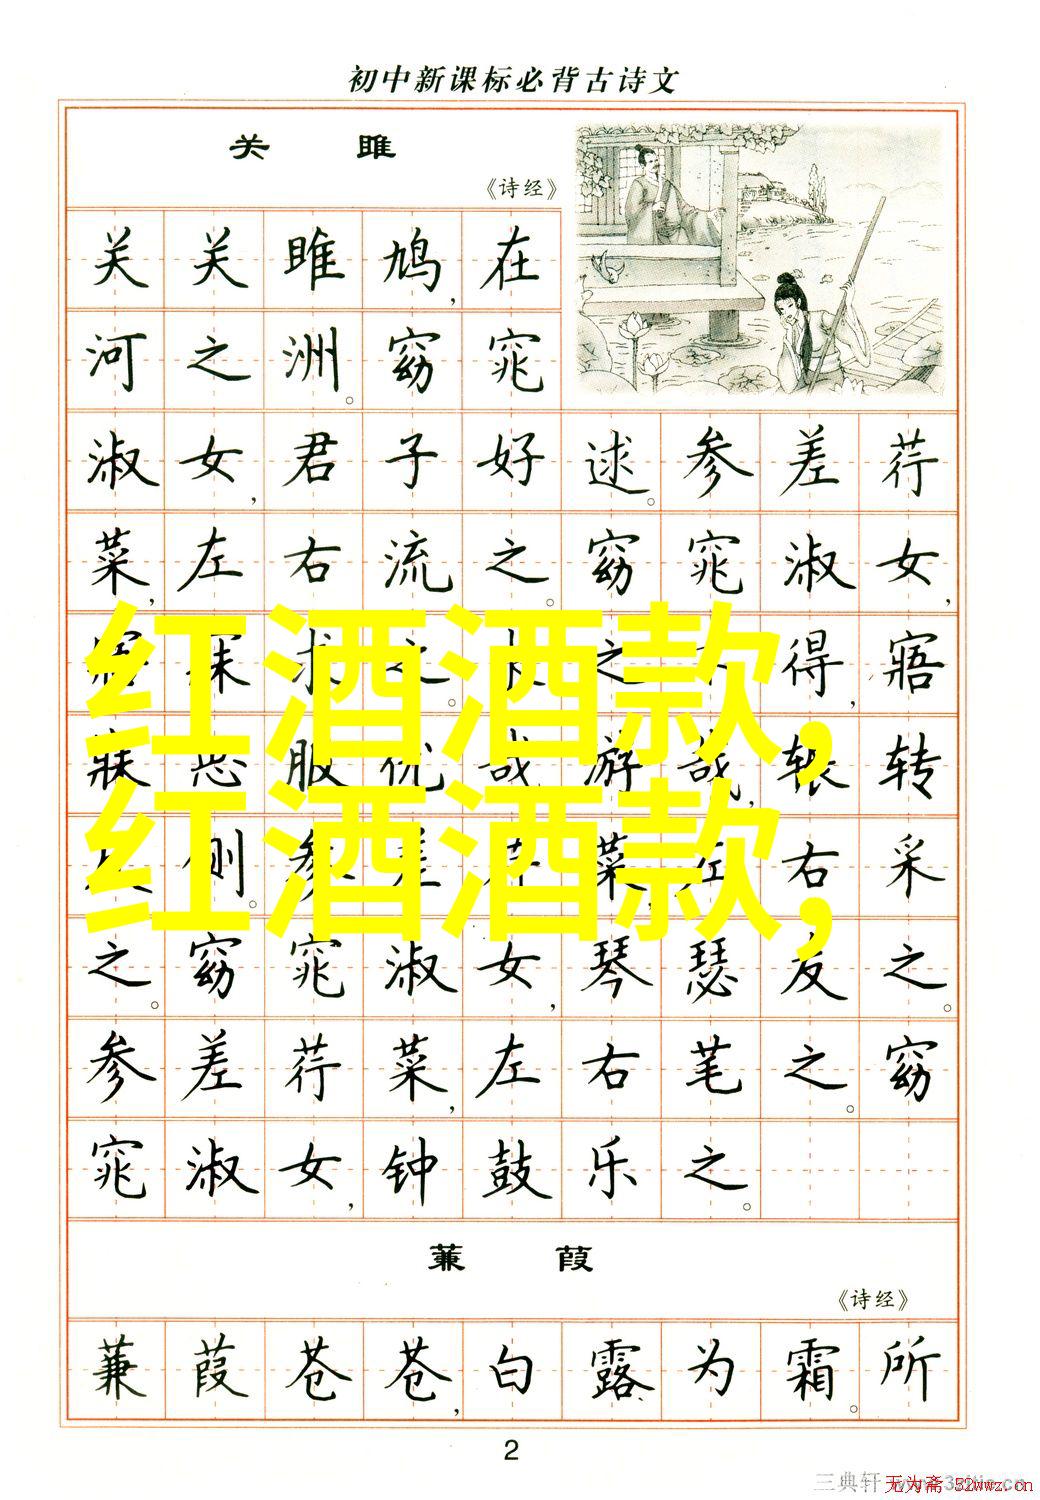 初中新课标必背古诗文
关 雎
《诗经》
关关雎鸠,在
河之洲。窈窕
淑女,君子好逑。参差荇
菜,左右流之。窈窕淑女,
寤寐求之。求之不得,寤
寐思服优哉游哉,辗转
侧。参差荇菜,左右采
之。窈窕淑女,琴瑟友之。
参差荇菜,左右芼之。窈
窕淑女,钟鼓乐之。
红酒酒款,
红酒酒款,
蒹 葭
《诗经》
蒹葭苍苍,白露为霜。所
2
三典轩
无为斋 52wwz.cn